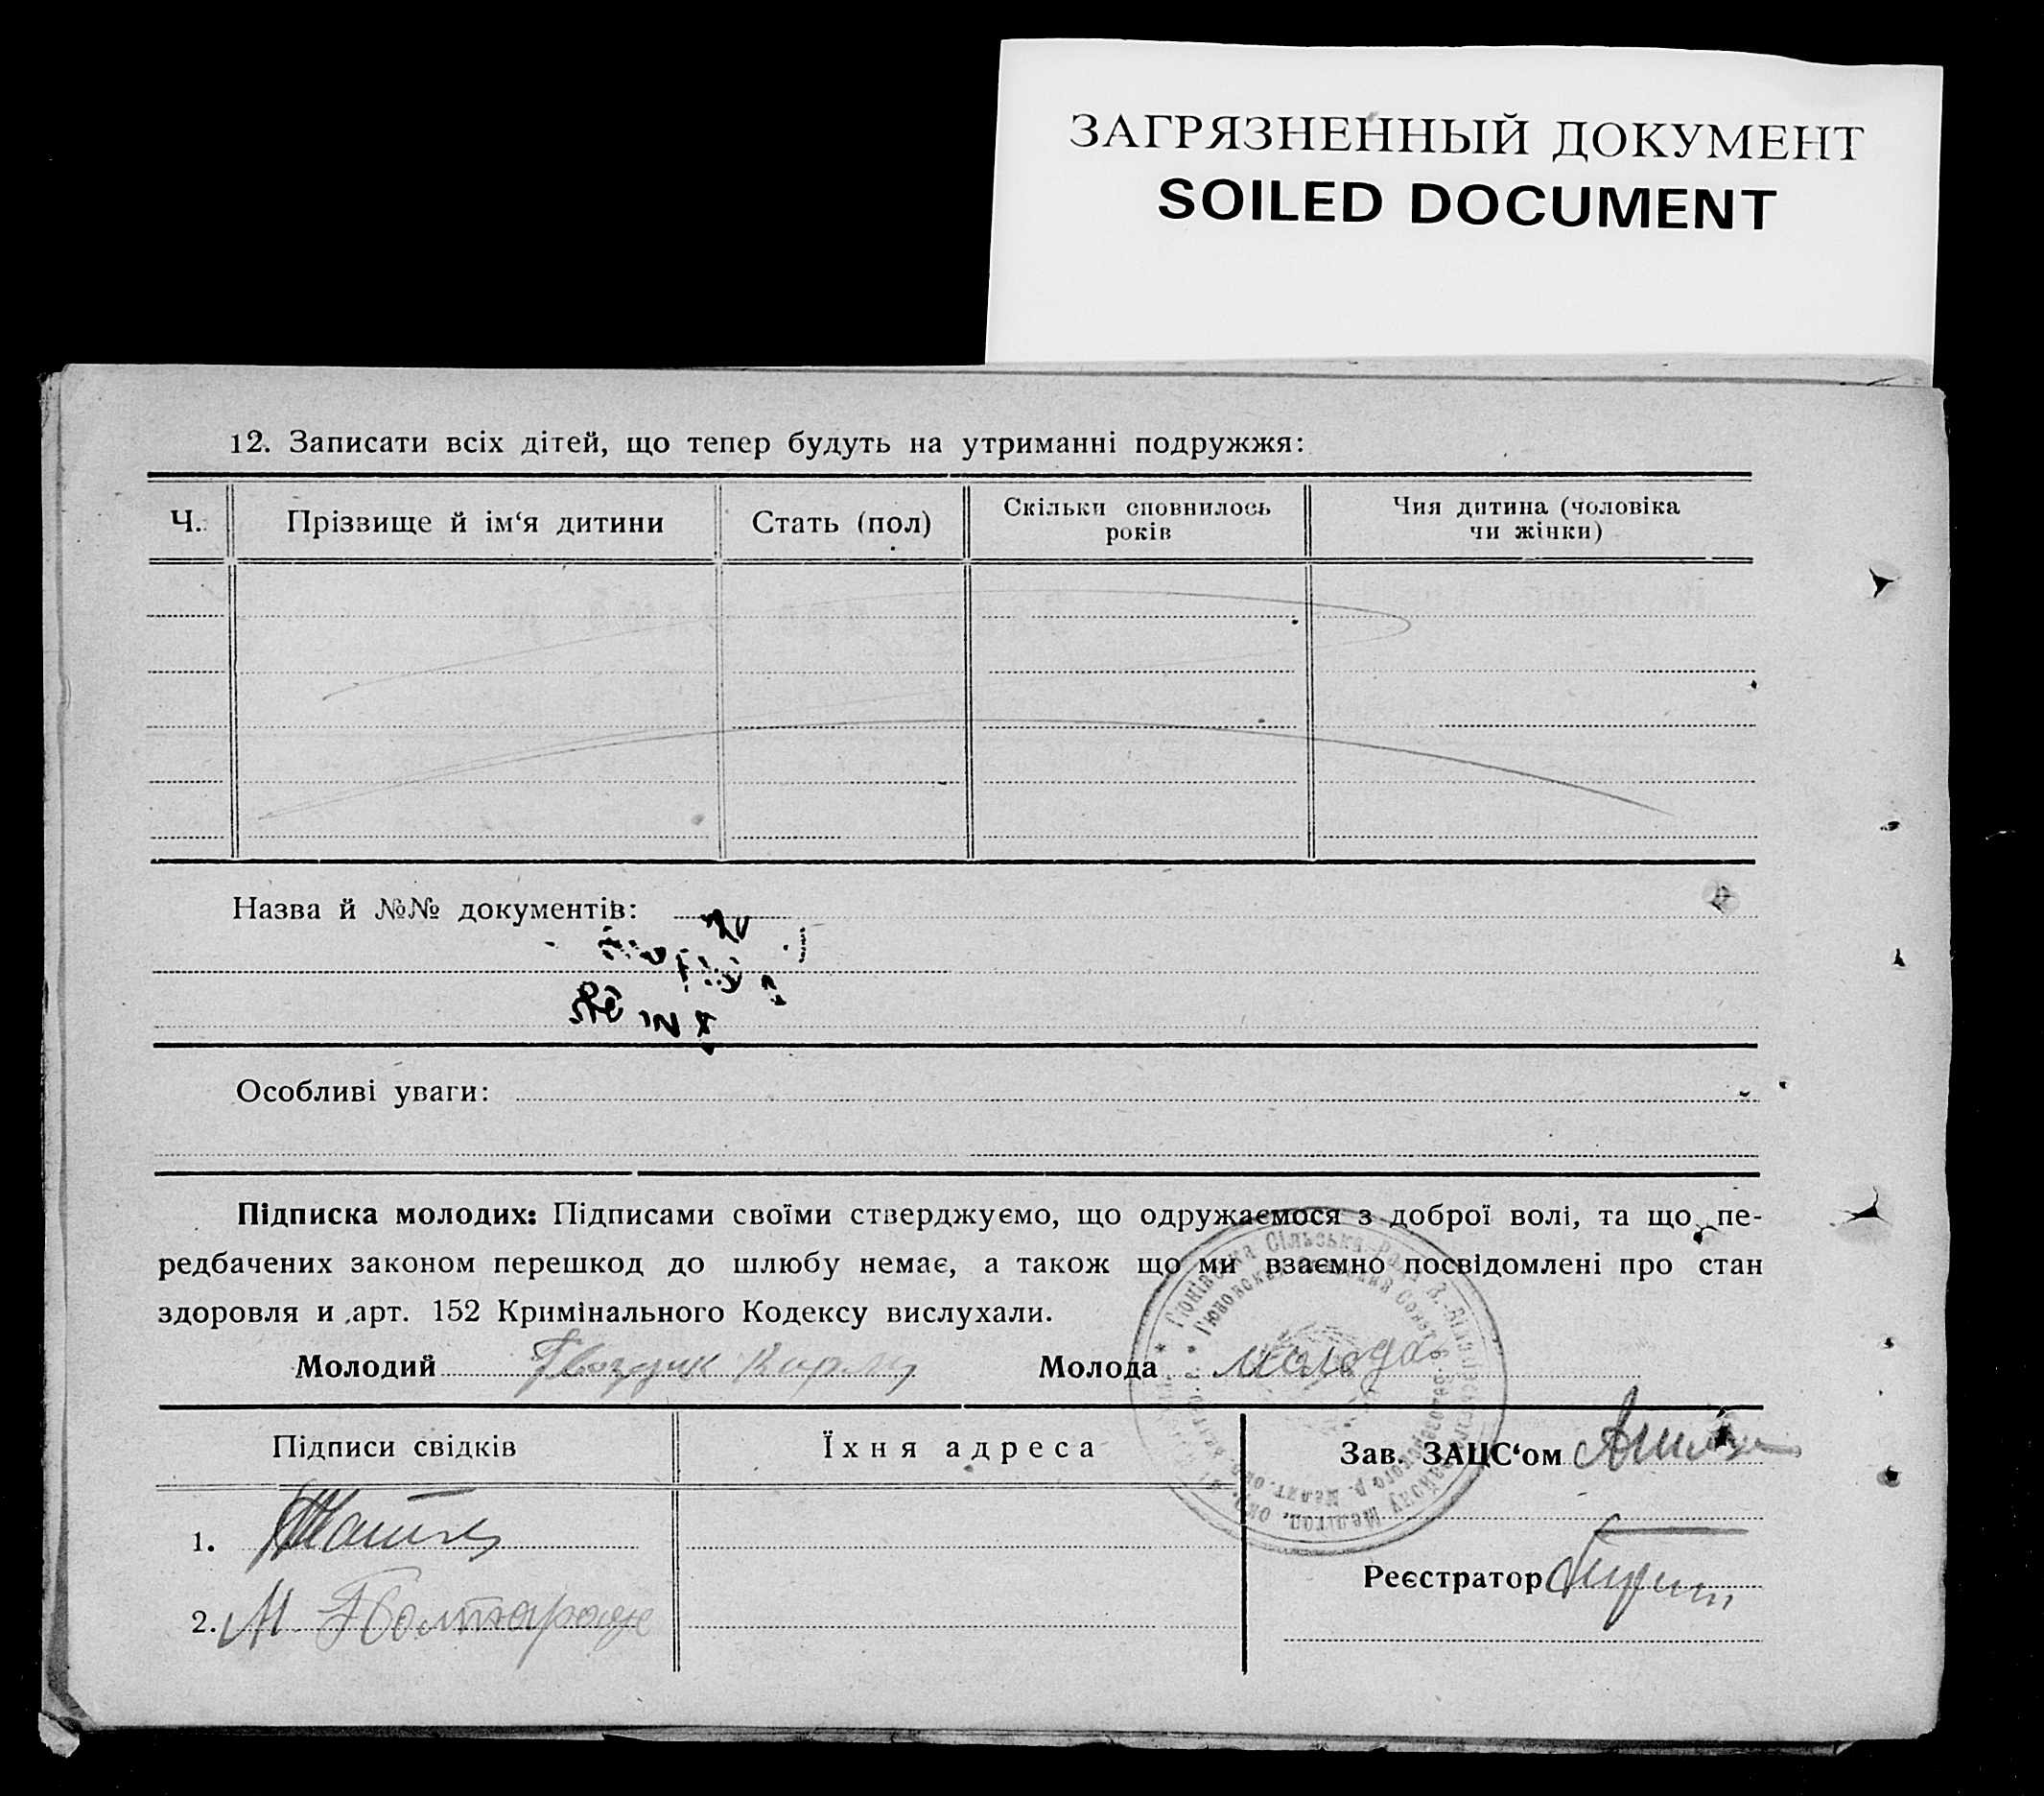 ЗАГРЯЗНЕННЫЙ ДОКУМЕНТ
SOILED DOCUMENT
12. Записати всіх дітей, що тепер будуть на утриманні подружжя:
Ч. Прізвище й ім‘я дитини Стать (пол) Скільки сповнилось років Чия дитина (чоловіка чи жінки)
Назва й №№ документів:
Особливі уваги:
Підписка молодих: Підписами своїми стверджуємо, що одружаємося з доброї волі, та що пе-
редбачених законом перешкод до шлюбу немає, а також що ми взаємно посвідомлені про стан
здоровля и арт. 152 Кримінального Кодексу вислухали.
Молодий Гвоздик Молода молода
Підписи свідків Їхня адреса Зав. ЗАЦС‘ом
1.
Реєстратор
2. М